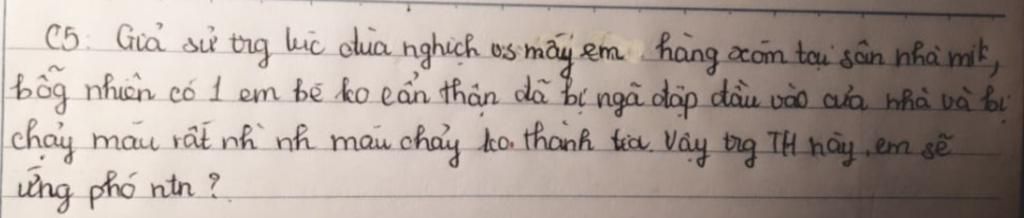 C5: Giả sử trg lúc đùa nghịch vs mấy em hàng xóm tại sân nhà mik,
bỗg nhiên có 1 em bé ko cẩn thận đã bị ngã đập đầu vào cửa nhà và bị
chảy máu rất nhì nh máu chảy ko thành tia. Vậy trg TH này, em sẽ
ứng phó ntn?